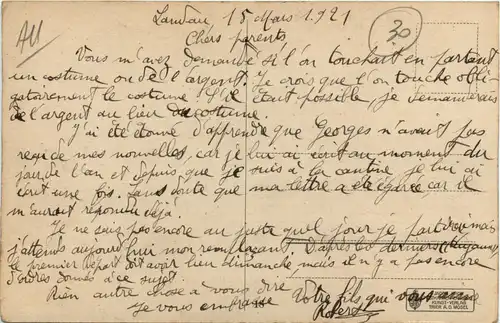 All
Landau, 15 Mars 1.921
30
Chers parents,
Vous m'avez demandé si l'on touchait en partant
un costume ou de l'argent. Je crois que l'on touche obli
gatoirement le costume. S'il était possible, je demanderais
de l'argent au lieu du costume.
J'ai été étonné d'apprendre que Georges n'avait pas
reçu de mes nouvelles, car je lui ai écrit au moment du
jour de l'an et depuis que je suis à la cantine je lui ai
écrit une fois. Sans doute que ma lettre a été égarée car il
m'aurait répondu déjà.
Je ne sais pas encore au juste quel jour je partirai mais
j'attends aujourd'hui mon remplaçant. D'après les derniers
le premier départ doit avoir lieu dimanche mais il n'y a pas encore
d'ordres donnés à ce sujet.
Rien autre chose à vous dire
Votre fils qui vous aime
Je vous embrasse
Robert
KUNST-VERLAG
TRIER A. D. MOSEL